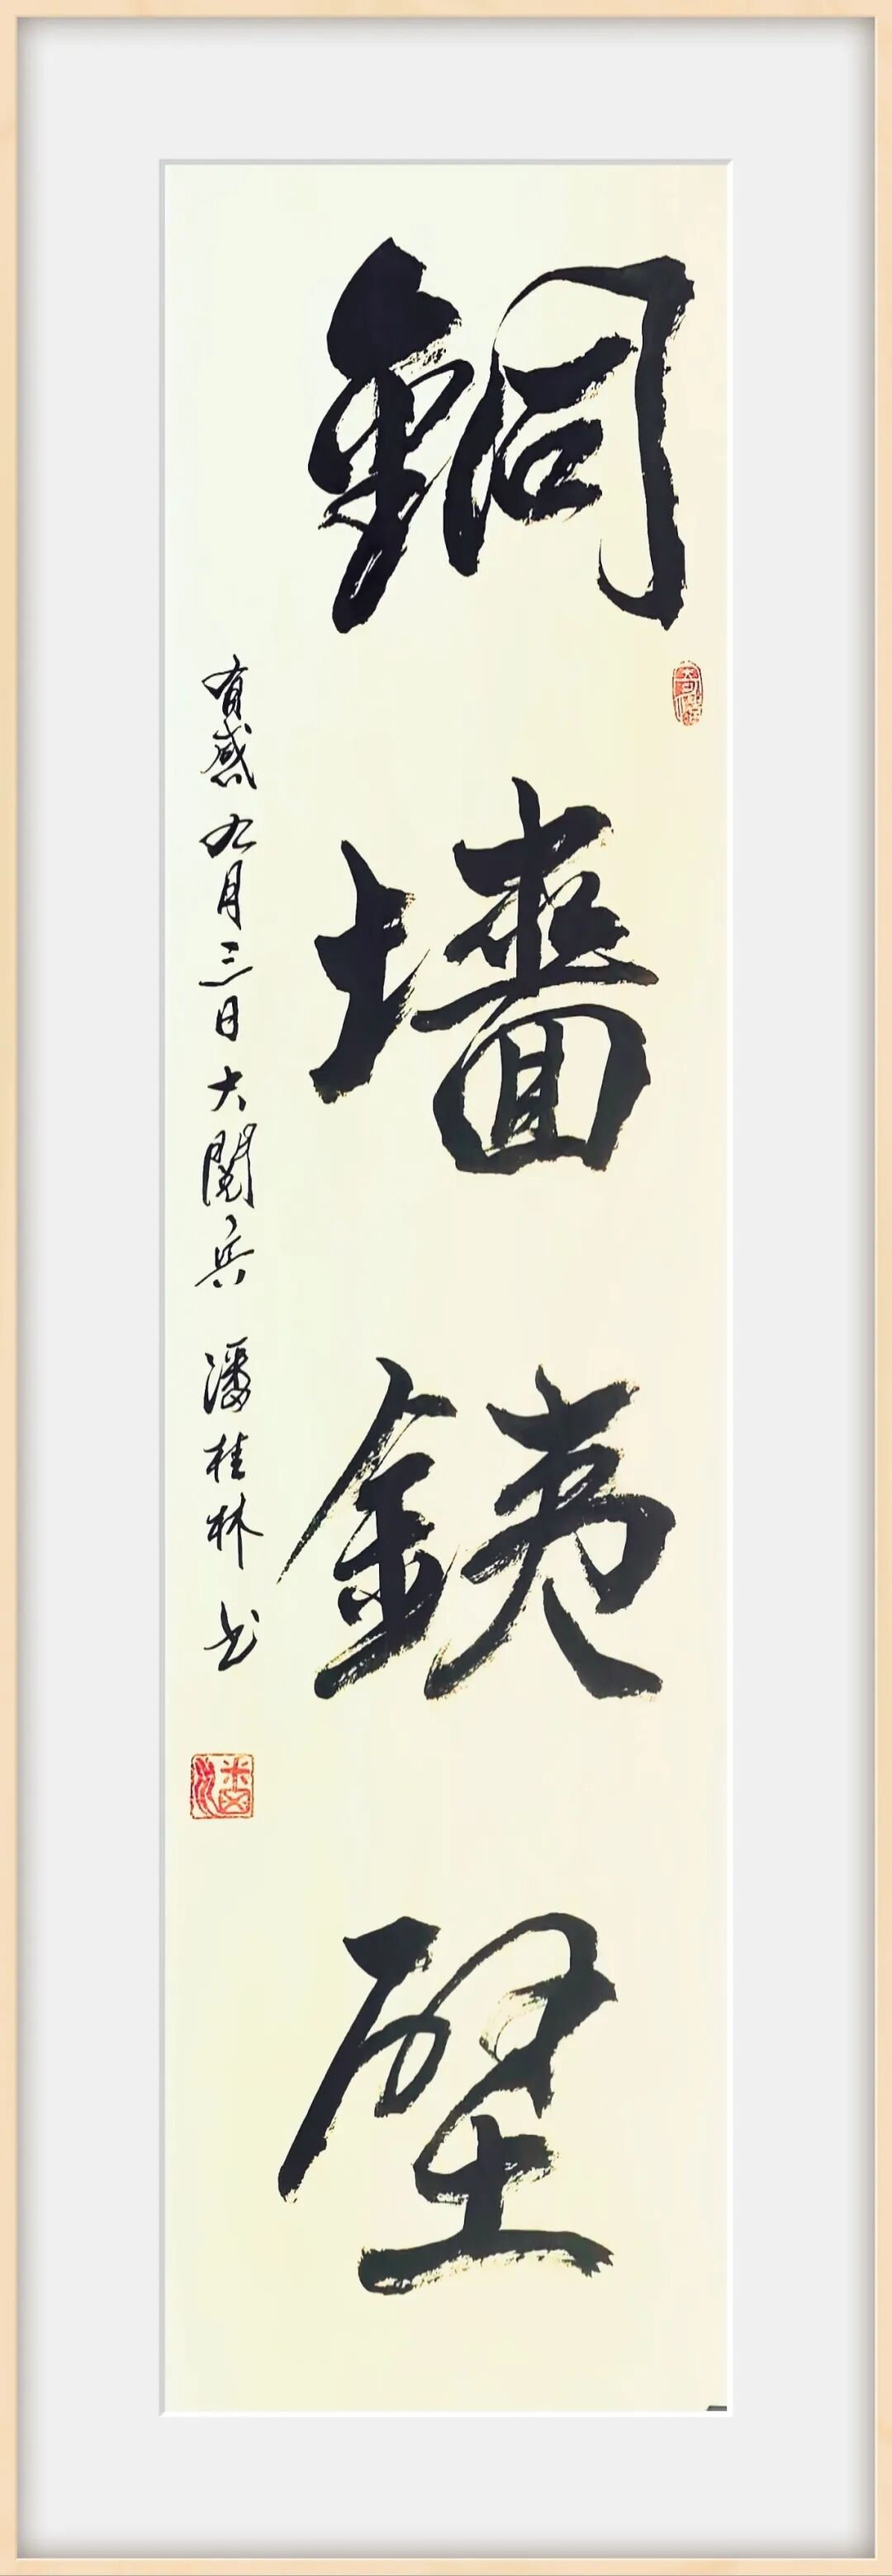 銅墻銕壁
有感九月三日大閱兵 潘桂林书
潘